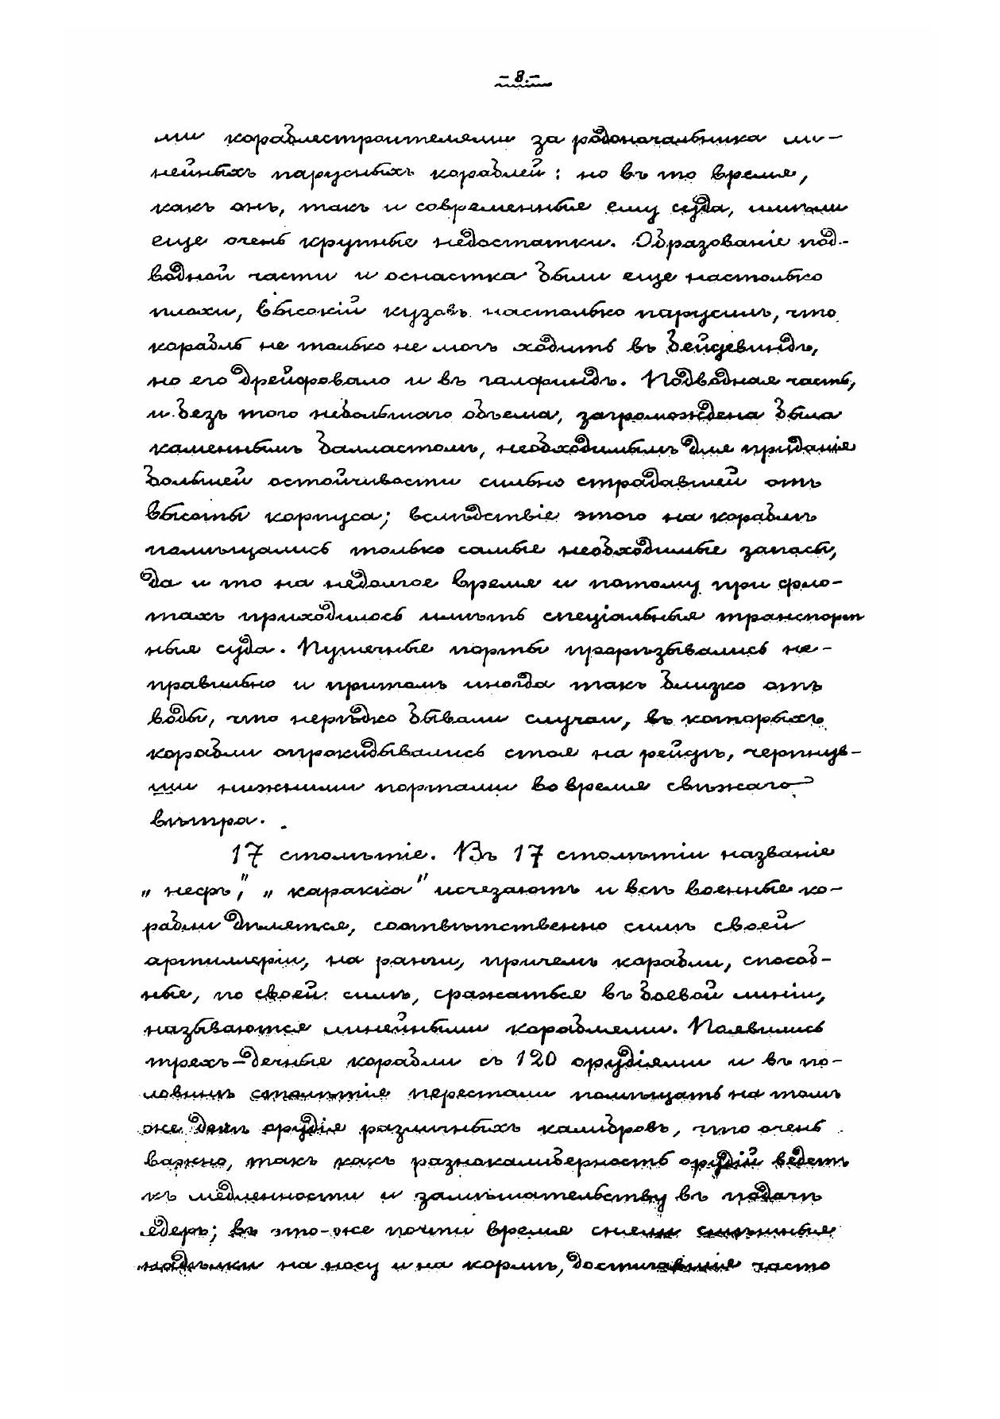 - 8 -
ми кораблестроителями за родоначальника ли-
нейныхъ парусныхъ кораблей: но въ то время,
какъ онъ, такъ и современные ему суда, имѣли
еще очень крупные недостатки. Образованіе под-
водной части и оснастка были еще настолько
плохи, высокій кузовъ настолько парусилъ, что
корабль не только не могъ ходить въ бейдевиндъ,
но его дрейфовало и въ галфиндъ. Подводная часть,
и безъ того небольшаго объема, загромождена была
каменнымъ балластомъ, необходимымъ для приданія
большей остойчивости сильно страдавшей отъ
высоты корпуса; вслѣдствіе этого на корабль
помѣщались только самые необходимые запасы,
да и то на недолгое время и потому при фло-
тахъ приходилось имѣть спеціальные транспорт
ные суда. Пушечные порты прорѣзывались не-
правильно и притомъ иногда такъ близко отъ
воды, что нерѣдко бывали случаи, въ которыхъ
корабли опрокидывались стоя на рейдѣ, черпнув-
ши нижними портами во время свѣжаго
вѣтра.
17 столѣтіе. Въ 17 столѣтіи названіе
„нефъ", „каракка" исчезаютъ и всѣ военные ко-
рабли дѣлятся, соотвѣтственно силѣ своей
артиллеріи, на ранги, причемъ корабли, способ-
ные, по своей силѣ, сражаться въ боевой линіи,
называются линейными кораблями. Появились
трехъ-дечные корабли съ 120 орудіями и въ по-
ловинѣ столѣтія перестали помѣщать на томъ
же декѣ орудія различныхъ калибровъ, что очень
важно, такъ какъ разнокалиберность орудій ведетъ
къ медленности и замѣшательству въ подачѣ
ядеръ; въ это-же почти время сняли
надѣлки на носу и на кормѣ, достигавшія часто